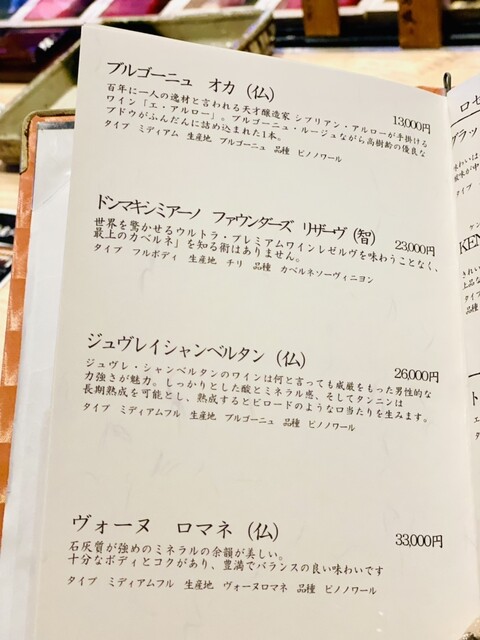 ブルゴーニュ オカ (仏)
百年に一人の逸材と言われる天才醸造家 シプリアン・アルローが手掛ける
ワイン「エ・アルロー」。ブルゴーニュ・ルージュながら高樹齢の優良な
ブドウがふんだんに詰め込まれた1本。
13,000円
タイプ ミディアム 生産地 ブルゴーニュ 品種 ピノノワール
ドンマキシミアーノ ファウンダーズ リザーヴ (智)
世界を驚かせるウルトラ・プレミアムワインレゼルヴを味わうことなく、
最上のカベルネ」を知る術はありません。
23,000円
タイプ フルボディ 生産地 チリ 品種 カベルネソーヴィニヨン
ジュヴレイシャンベルタン (仏)
26,000円
ジュヴレ・シャンベルタンのワインは何と言っても威厳をもった男性的な
力強さが魅力。しっかりとした酸とミネラル感、そしてタンニンは
長期熟成を可能とし、熟成するとビロードのような口当たりを生みます。
タイプ ミディアムフル 生産地 ブルゴーニュ 品種 ピノノワール
ヴォーヌ ロマネ (仏)
33,000円
石灰質が強めのミネラルの余韻が美しい。
十分なボディとコクがあり、豊満でバランスの良い味わいです
タイプ ミディアムフル 生産地 ヴォーヌロマネ 品種 ピノノワール
ロゼ
グラッ
味わいは
タイプ
KEN
タイプ
品種
ト